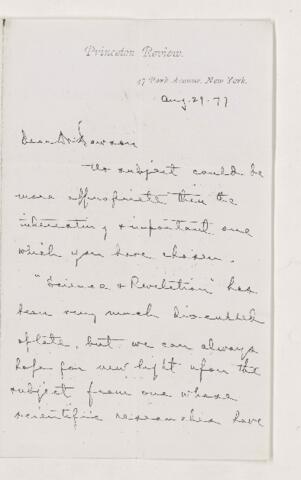 Princeton Review.
47 Park Avenue, New York.
Aug. 29. 77
Dear Dr. Dawson
No subject could be
more appropriate than the
interesting & important one
which you have chosen.
"Science & Revelation" has
been very much discussed
of late, but we can always
hope for new light upon the
subject from one whose
scientific researches have